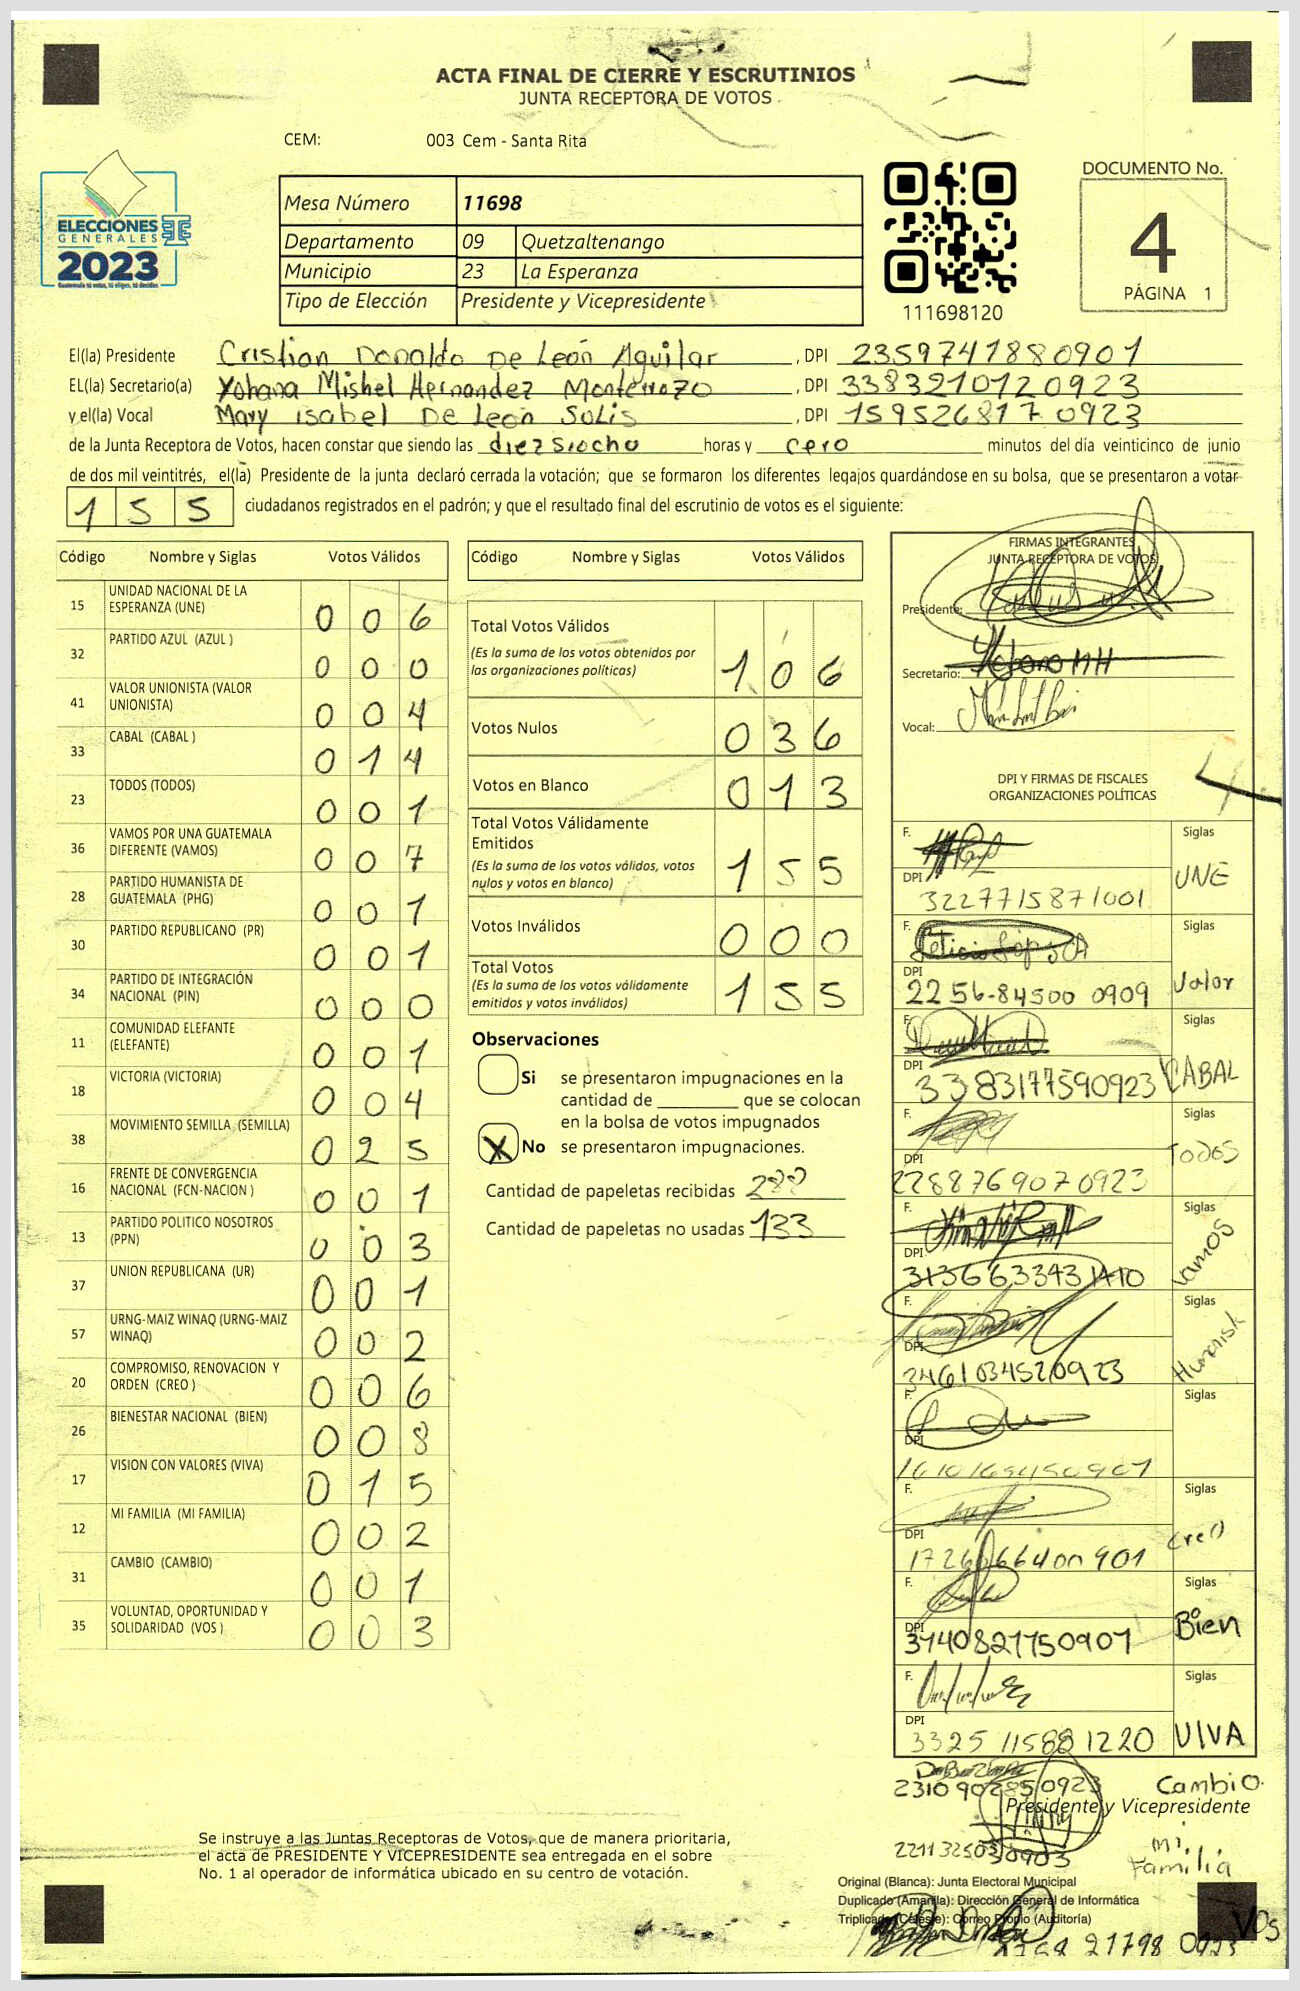 ACTA FINAL DE CIERRE Y ESCRUTINIOS
JUNTA RECEPTORA DE VOTOS
CEM: 003 Cem - Santa Rita
ELECCIONES
GENERALES
2023
Guatemala tú votas, tú eliges, tú decides
Mesa Número 11698
Departamento 09 Quetzaltenango
Municipio 23 La Esperanza
Tipo de Elección Presidente y Vicepresidente
111698120
DOCUMENTO No.
4
PÁGINA 1
El(la) Presidente Cristian Donaldo De León Aguilar, DPI 2359741880901
EL(la) Secretario(a) Yohana Mishel Hernandez Monterrozo, DPI 3383210120923
y el(la) Vocal Mary Isabel De León Solis, DPI 1595268170923
de la Junta Receptora de Votos, hacen constar que siendo las diezsiocho horas y cero minutos del día veinticinco de junio
de dos mil veintitrés, el(la) Presidente de la junta declaró cerrada la votación; que se formaron los diferentes legajos quardándose en su bolsa, que se presentaron a votar
155 ciudadanos registrados en el padrón; y que el resultado final del escrutinio de votos es el siguiente:
Código Nombre y Siglas Votos Válidos
15 UNIDAD NACIONAL DE LA ESPERANZA (UNE) 006
32 PARTIDO AZUL (AZUL ) 000
41 VALOR UNIONISTA (VALOR UNIONISTA) 004
33 CABAL (CABAL ) 014
23 TODOS (TODOS) 001
36 VAMOS POR UNA GUATEMALA DIFERENTE (VAMOS) 007
28 PARTIDO HUMANISTA DE GUATEMALA (PHG) 001
30 PARTIDO REPUBLICANO (PR) 001
34 PARTIDO DE INTEGRACIÓN NACIONAL (PIN) 000
11 COMUNIDAD ELEFANTE (ELEFANTE) 001
18 VICTORIA (VICTORIA) 004
38 MOVIMIENTO SEMILLA (SEMILLA) 025
16 FRENTE DE CONVERGENCIA NACIONAL (FCN-NACION ) 001
13 PARTIDO POLITICO NOSOTROS (PPN) 003
37 UNION REPUBLICANA (UR) 001
57 URNG-MAIZ WINAQ (URNG-MAIZ WINAQ) 002
20 COMPROMISO, RENOVACION Y ORDEN (CREO ) 006
26 BIENESTAR NACIONAL (BIEN) 008
17 VISION CON VALORES (VIVA) 015
12 MI FAMILIA (MI FAMILIA) 002
31 CAMBIO (CAMBIO) 001
35 VOLUNTAD, OPORTUNIDAD Y SOLIDARIDAD (VOS ) 003
Código Nombre y Siglas Votos Válidos
Total Votos Válidos 106
(Es la suma de los votos obtenidos por
las organizaciones políticas)
Votos Nulos 036
Votos en Blanco 013
Total Votos Válidamente
Emitidos 155
(Es la suma de los votos válidos, votos
nulos y votos en blanco)
Votos Inválidos 000
Total Votos 155
(Es la suma de los votos válidamente
emitidos y votos inválidos)
Observaciones
Si se presentaron impugnaciones en la
cantidad de ________ que se colocan
en la bolsa de votos impugnados
X No se presentaron impugnaciones.
Cantidad de papeletas recibidas
Cantidad de papeletas no usadas 133
FIRMAS INTEGRANTES
JUNTA RECEPTORA DE VOTOS
Presidente:
Secretario:
Vocal:
DPI Y FIRMAS DE FISCALES
ORGANIZACIONES POLÍTICAS
F. Siglas
DPI 3227715871001 UNE
F. Siglas
DPI 2256-84500 0909 Valor
F. Siglas
DPI 3383177590923 CABAL
F.
DPI 2288769070923 TODOS
F. Siglas
DPI 3136633431410 Vamos
F. Siglas
DPI 2461034520923 Humanista
F. Siglas
DPI
F. Siglas
DPI Creo
F. Siglas
DPI 3140821750901 Bien
F. Siglas
DPI 3325 11588 1220 VIVA
2310902850923 Cambio
Presidente y Vicepresidente
mi
Familia
Se instruye a las Juntas Receptoras de Votos, que de manera prioritaria,
el acta de PRESIDENTE Y VICEPRESIDENTE sea entregada en el sobre
No. 1 al operador de informática ubicado en su centro de votación.
Original (Blanca): Junta Electoral Municipal
Duplicado (Amarilla): Dirección General de Informática
Triplicado (Celeste): Correo Propio (Auditoría)
VOS
21798 0923